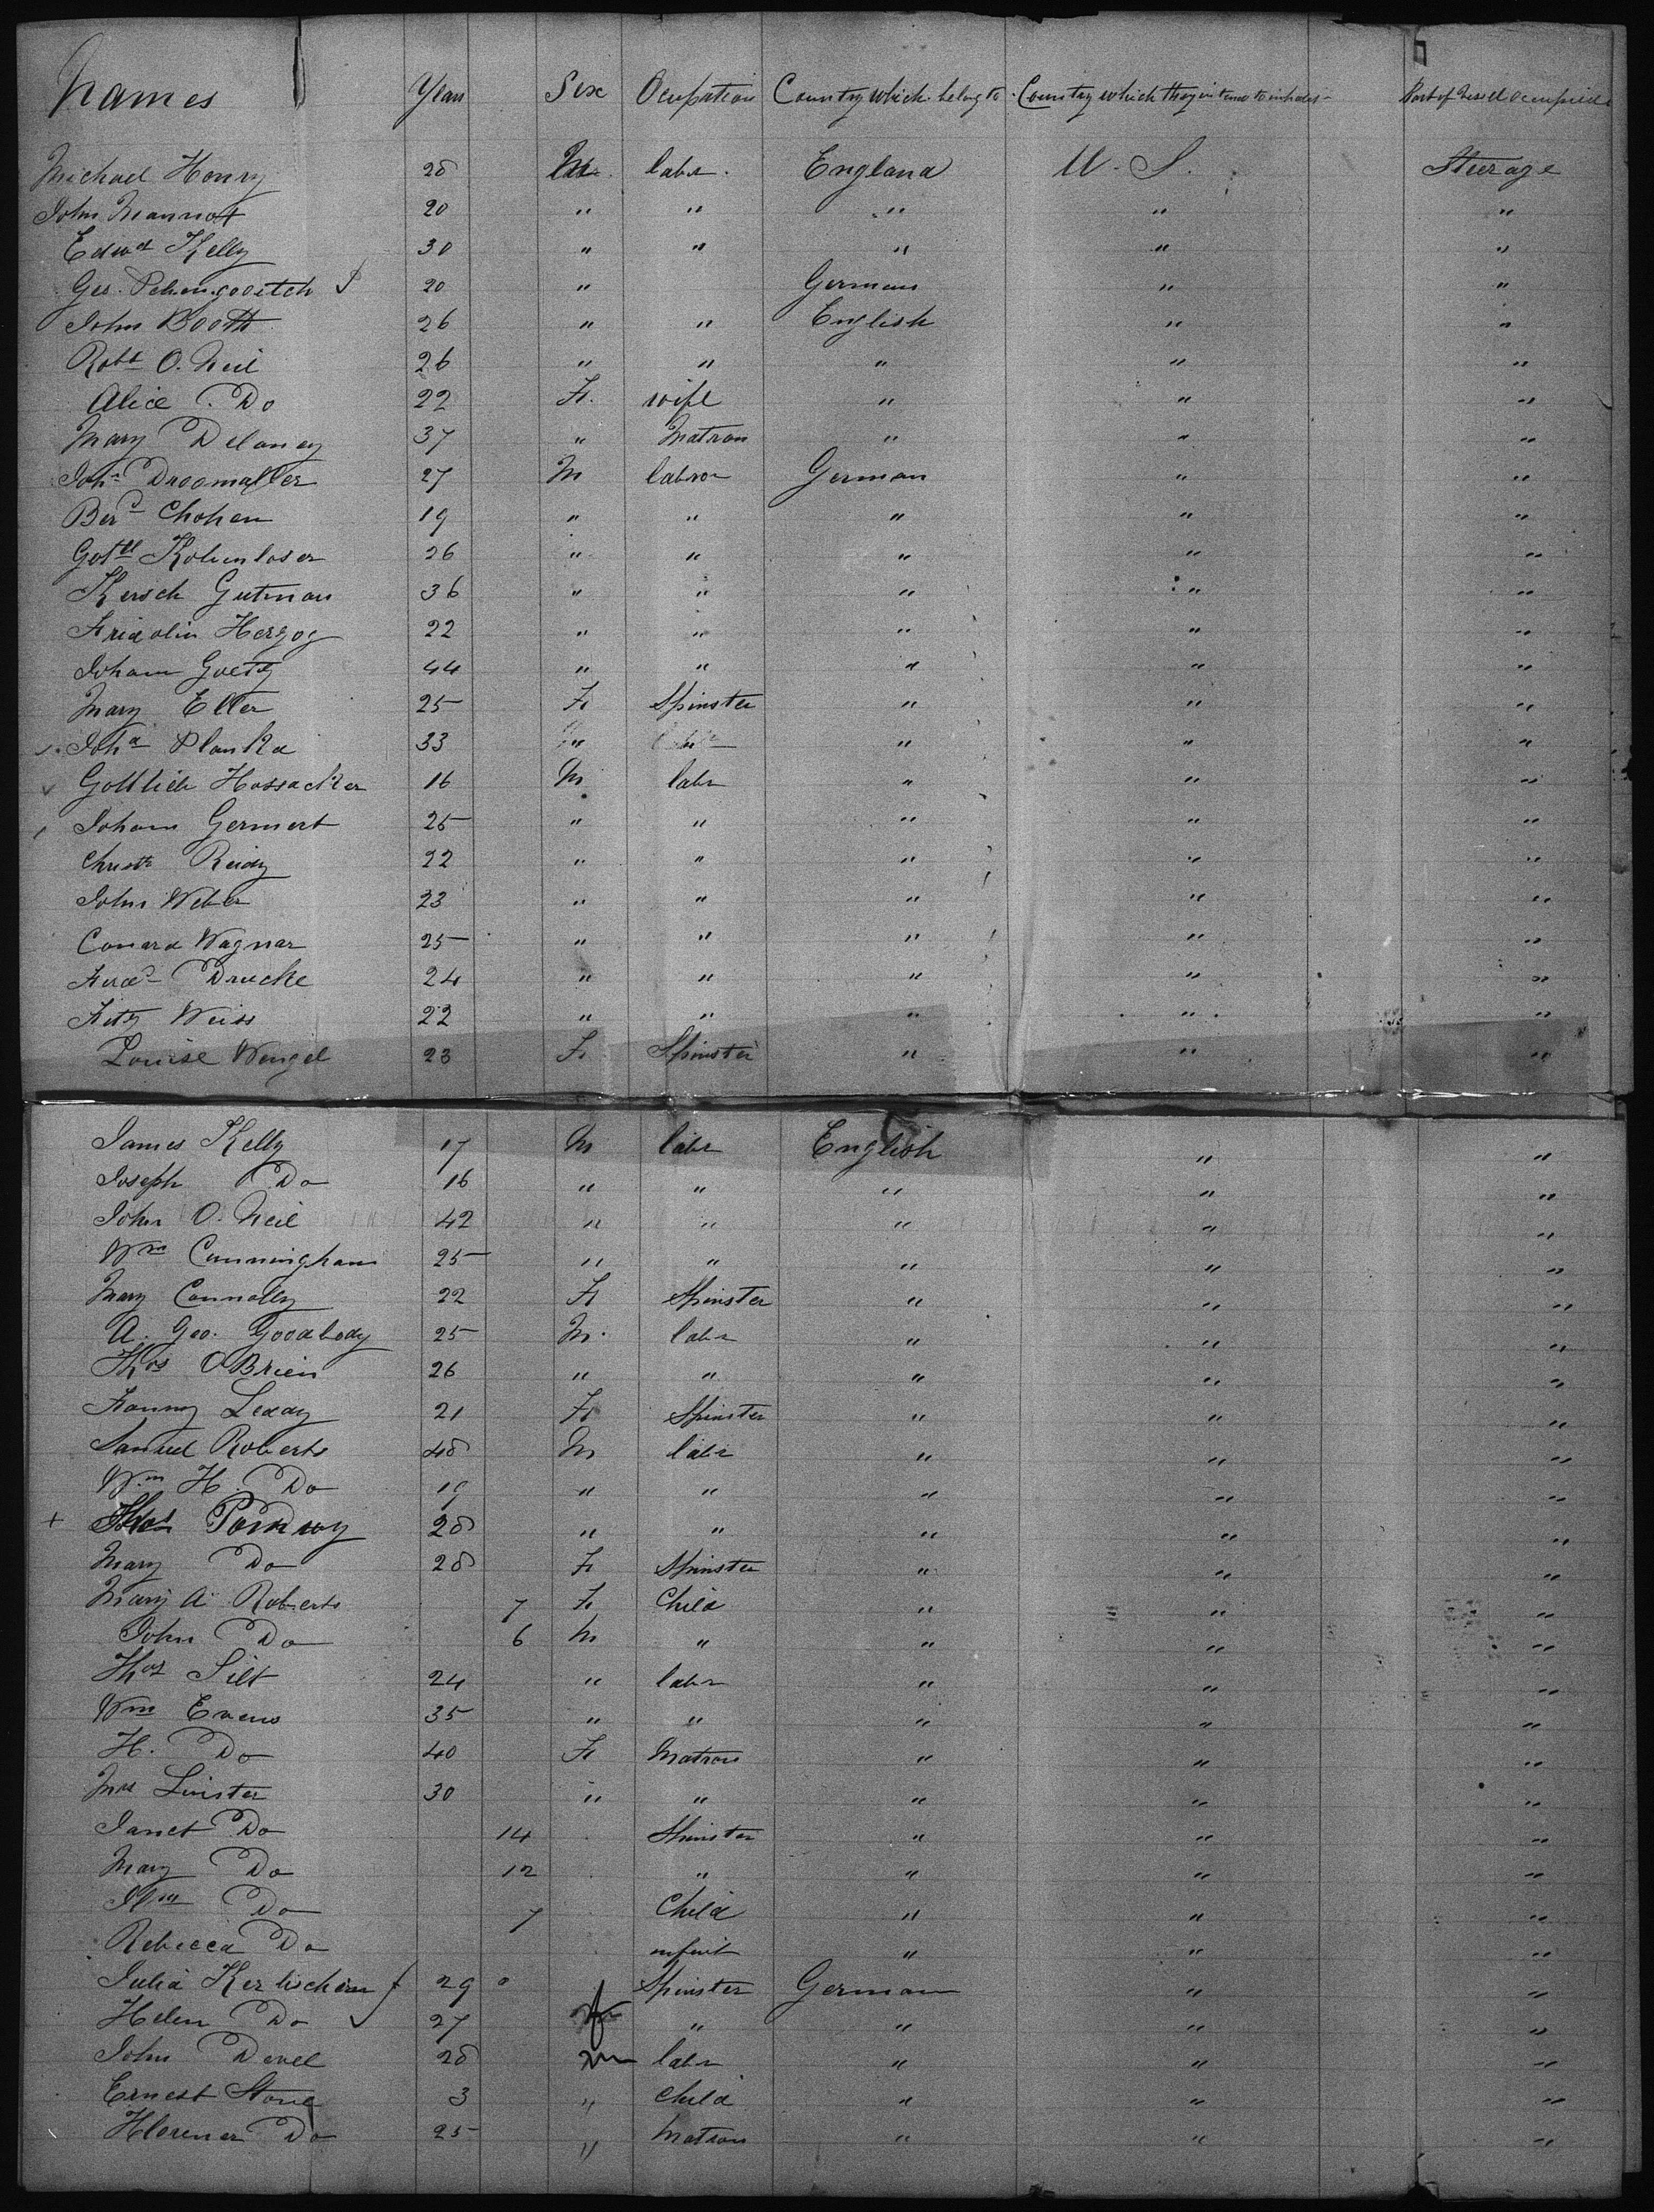 Names Years Sex Ocupation Country which belong to Country which they intend to inhabit Part of Vessel Occupied
Michael Henry 28 M labr. England U. S. Steerage
John Mannot 20 " " " " "
Edwd Kelly 30 " " " " "
Geo. 20 " German " "
John Booth 26 " " English " "
Robt O. Neil 26 " " " " "
Alice Do 22 F. wife " " "
Mary Delaney 37 " Matron " " "
John 27 M labror German " "
Berd Chohen 19 " " " " "
26 " " " " "
Kersch Gutman 36 " " " " "
Fridolin Herzog 22 " " " " "
Joham Goetz 44 " " " " "
Mary Eller 25 F Spinster " " "
Joha Planka 33 " " " "
Gottlieb Hossacker 16 M labr " " "
Joham Germert 25 " " " " "
Reidy 22 " " " " "
John Weber 23 " " " " "
Conard Wagnar 25 " " " " "
Drucke 24 " " " " "
Fritz Weiss 22 " " " " "
Louise Wengel 23 F Spinster " " "
James Kelly 17 M labr English " "
Joseph Do 16 " " " " "
John O. Neil 42 " " " " "
Wm Cunningham 25 " " " " "
Mary Connolly 22 F Spinster " " "
A. Geo. Goodbody 25 M. labr " " "
Thos OBrien 26 " " " " "
Fanny Leddy 21 F Spinster " " "
Samuel Roberts 48 M labr " " "
Wm H. Do 19 " " " " "
+ Thos 28 " " " " "
Mary Do 28 F Spinster " " "
Mary A Roberts 7 F Child " " "
John Do 6 M " " " "
Thos Silt 24 " labr " " "
Wm Evans 35 " " " " "
H. Do 40 F Matron " " "
Mrs Linster 30 " " " " "
Janet Do 14 Spinster " " "
Mary Do 12 " " " "
Wm Do 7 Child " " "
Rebecca Do infant " " "
Julia 29 Spinster German " "
Helen Do 27 f " " " "
John Devel 28 m labr " " "
Ernest Stone 3 " Child " " "
Do 25 " Matron " " "